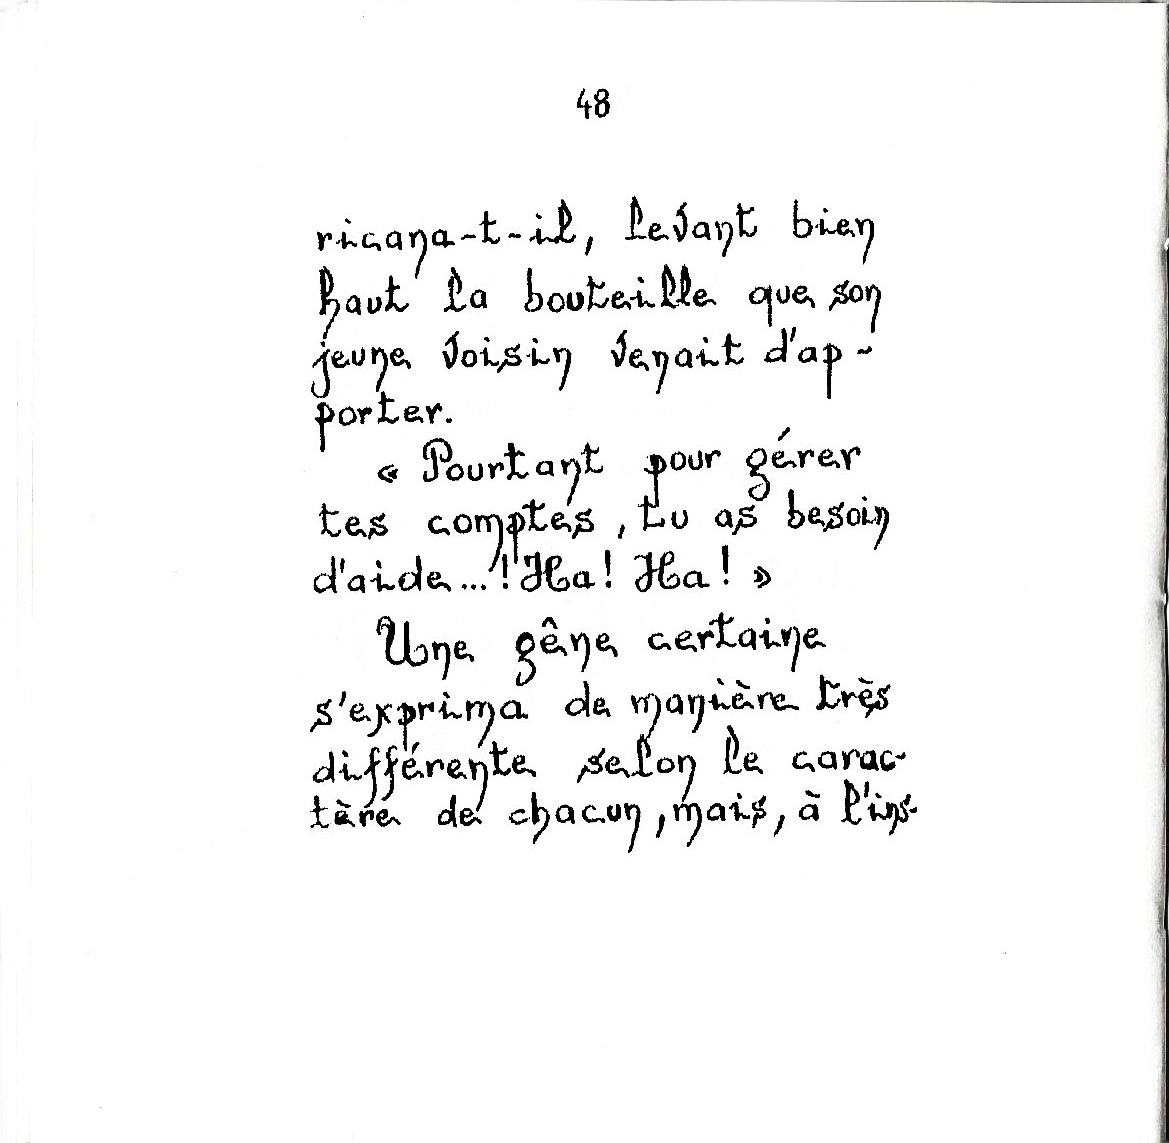 48
ricana-t-il, levant bien
haut la bouteille que son
jeune voisin venait d'ap-
porter.
« Pourtant pour gérer
tes comptes, tu as besoin
d'aide...! Ha! Ha! »
Une gêne certaine
s'exprima de manière très
différente selon le carac-
tère de chacun, mais, à l'ins-